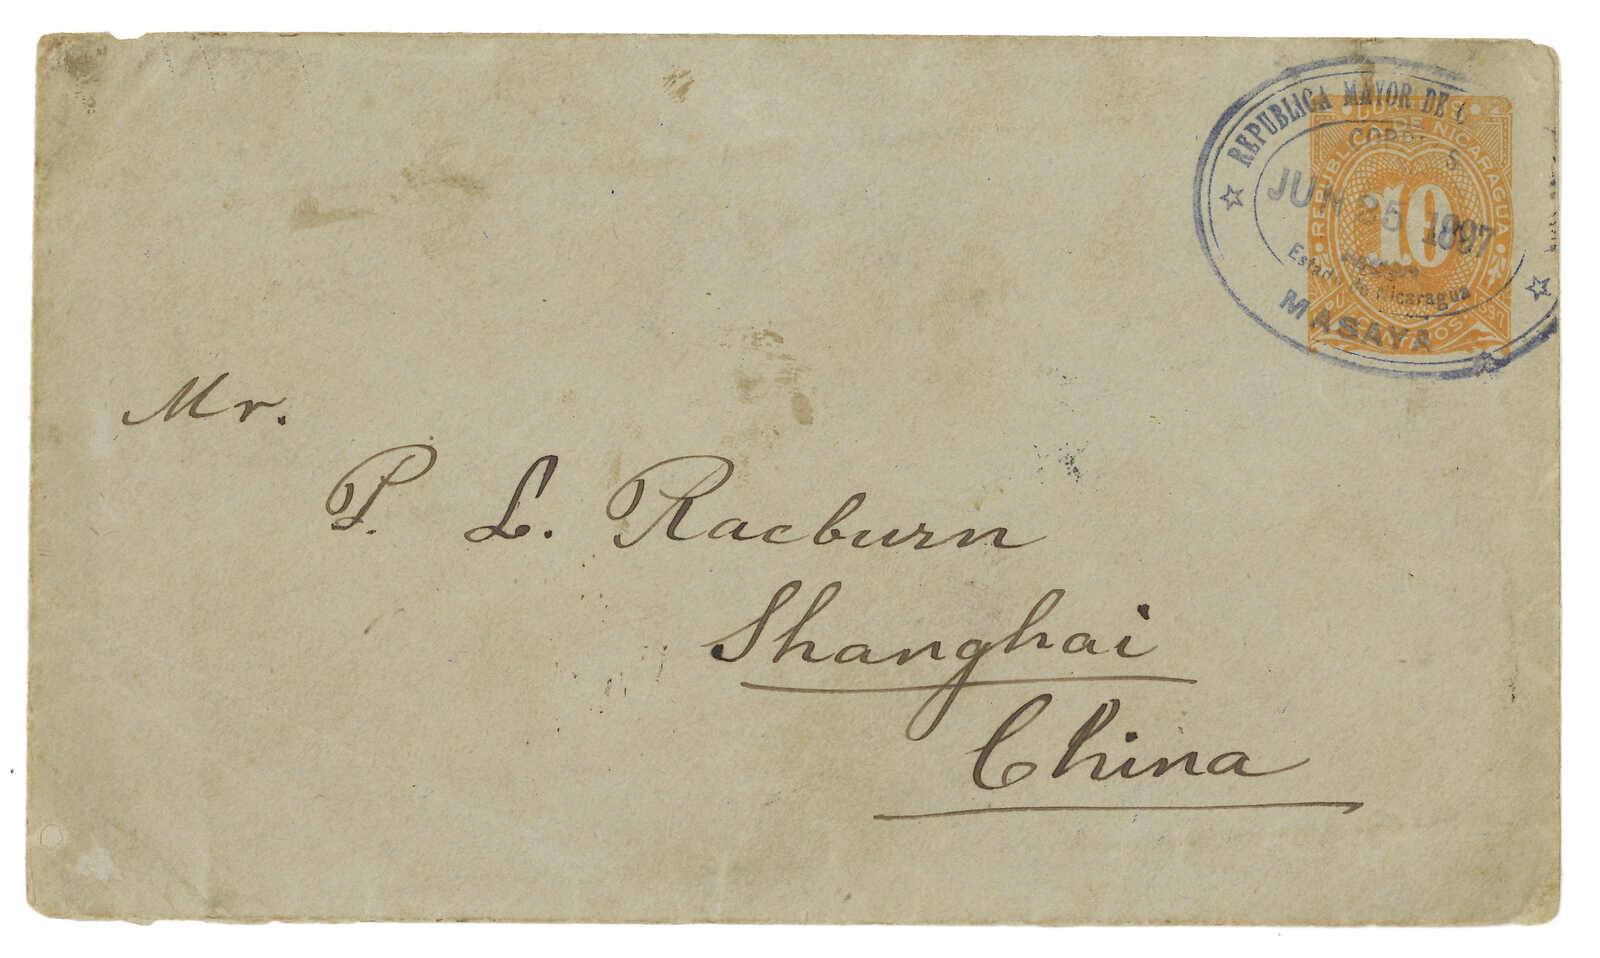 REPUBLICA MAYOR DE C
CORR S
JUN 25 1897
Estado de Nicaragua
MASAYA
REPUBLICA DE NICARAGUA
10
Mr.
P. L. Raeburn
Shanghai
China